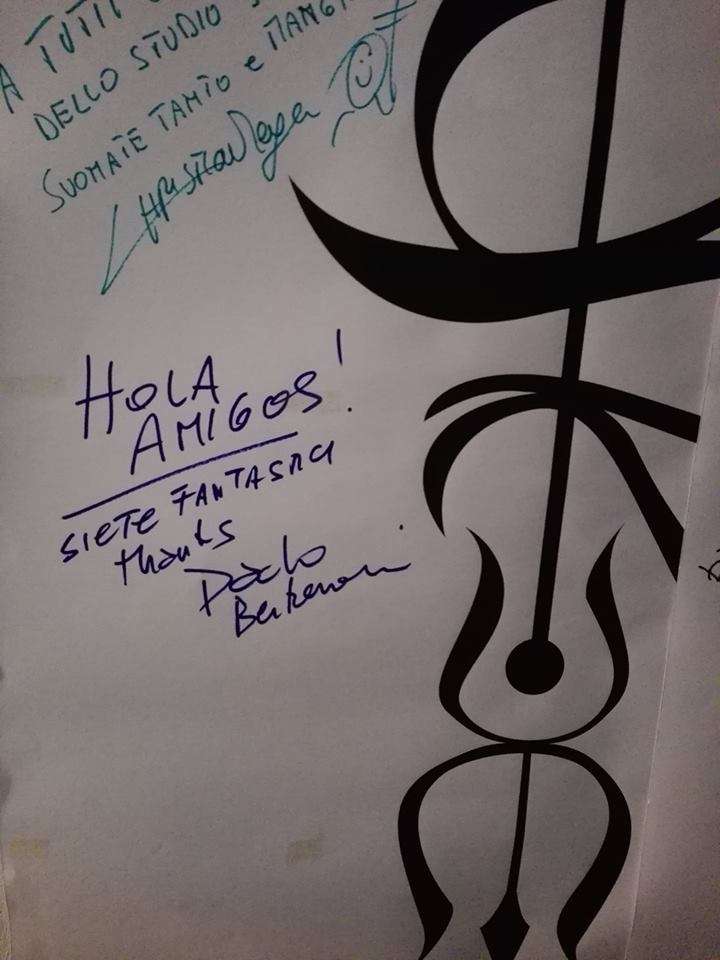 A TUTTI
DELLO STUDIO
SUONATE TANTO e
HOLA
AMIGOS!
SIETE FANTASTICI
thanks
Paolo